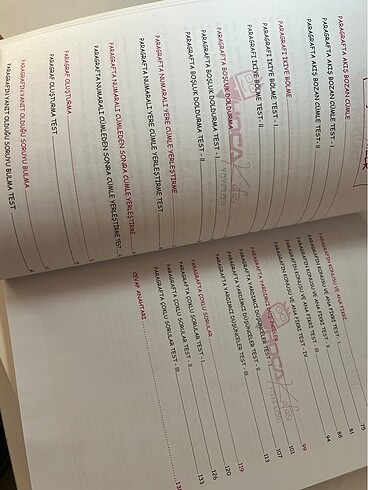 PARAGRAFTA AKIŞ BOZAN CÜMLE
PARAGRAFTA AKIŞ BOZAN CÜMLE TEST - I
PARAGRAFTA AKIŞ BOZAN CÜMLE TEST - II
PARAGRAFI İKİYE BÖLME
PARAGRAFI İKİYE BÖLME TEST - I
PARAGRAFI İKİYE BÖLME TEST - II
PARAGRAFTA BOŞLUK DOLDURMA
PARAGRAFTA BOŞLUK DOLDURMA TEST - I
PARAGRAFTA BOŞLUK DOLDURMA TEST - II
PARAGRAFTA NUMARALI YERE CÜMLE YERLEŞTİRME
PARAGRAFTA NUMARALI YERE CÜMLE YERLEŞTİRME TEST
PARAGRAFTA NUMARALI CÜMLEDEN SONRA CÜMLE YERLEŞTİRME
PARAGRAFTA NUMARALI CÜMLEDEN SONRA CÜMLE YERLEŞTİRME TEST
PARAGRAF OLUŞTURMA
PARAGRAF OLUŞTURMA TEST
PARAGRAFIN YANIT OLDUĞU SORUYU BULMA
PARAGRAFIN YANIT OLDUĞU SORUYU BULMA TEST
75
81
PARAGRAFIN KONUSU VE ANA FİKRİ TEST - I 88
PARAGRAFIN KONUSU VE ANA FİKRİ TEST - II 94
PARAGRAFIN KONUSU VE ANA FİKRİ TEST - III 99
PARAGRAFIN KONUSU VE ANA FİKRİ TEST - IV 101
PARAGRAFTA YARDIMCI DÜŞÜNCELER 107
PARAGRAFTA YARDIMCI DÜŞÜNCELER TEST - II 113
PARAGRAFTA YARDIMCI DÜŞÜNCELER TEST - III 119
PARAGRAFTA ÇOKLU SORULAR 120
PARAGRAFTA ÇOKLU SORULAR TEST - I 126
PARAGRAFTA ÇOKLU SORULAR TEST - II 133
PARAGRAFTA ÇOKLU SORULAR TEST - III
CEVAP ANAHTARI
HOCA Kafası
YAYINLARI